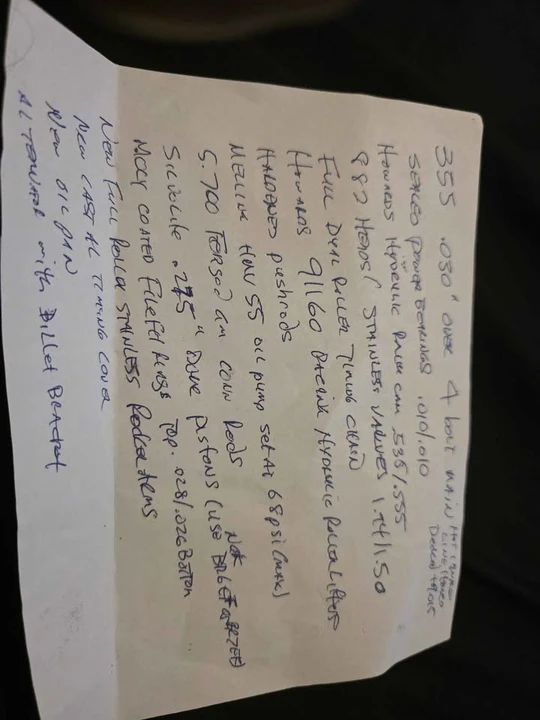 355 .030" OVER 4 bolt MAIN
SEALED POWER BEARINGS .010/.010
HOWARDS HYDRAULIC ROLLER CAM .535/.555
882 HEADS/ STAINLESS VALVES 1.94/1.50
FULL DUAL ROLLER TIMING CHAIN
HOWARDS 91160 RACING HYDRAULIC ROLLER LIFTERS
HARDENED pushrods
MELLING HMV 55 oil pump set AT 68 psi (MAX)
5.700 FORGED GM CONN Rods
Silvolite .275 " Dome pistons (USE
Not
Moly COATED File Fit Rings Top .028/.026 Bottom
NEW FULL ROLLER STAINLESS RockerArms
New CAST AL TIMING COVER
New OIL PAN
ALTERNATOR with BILLET BRACKET